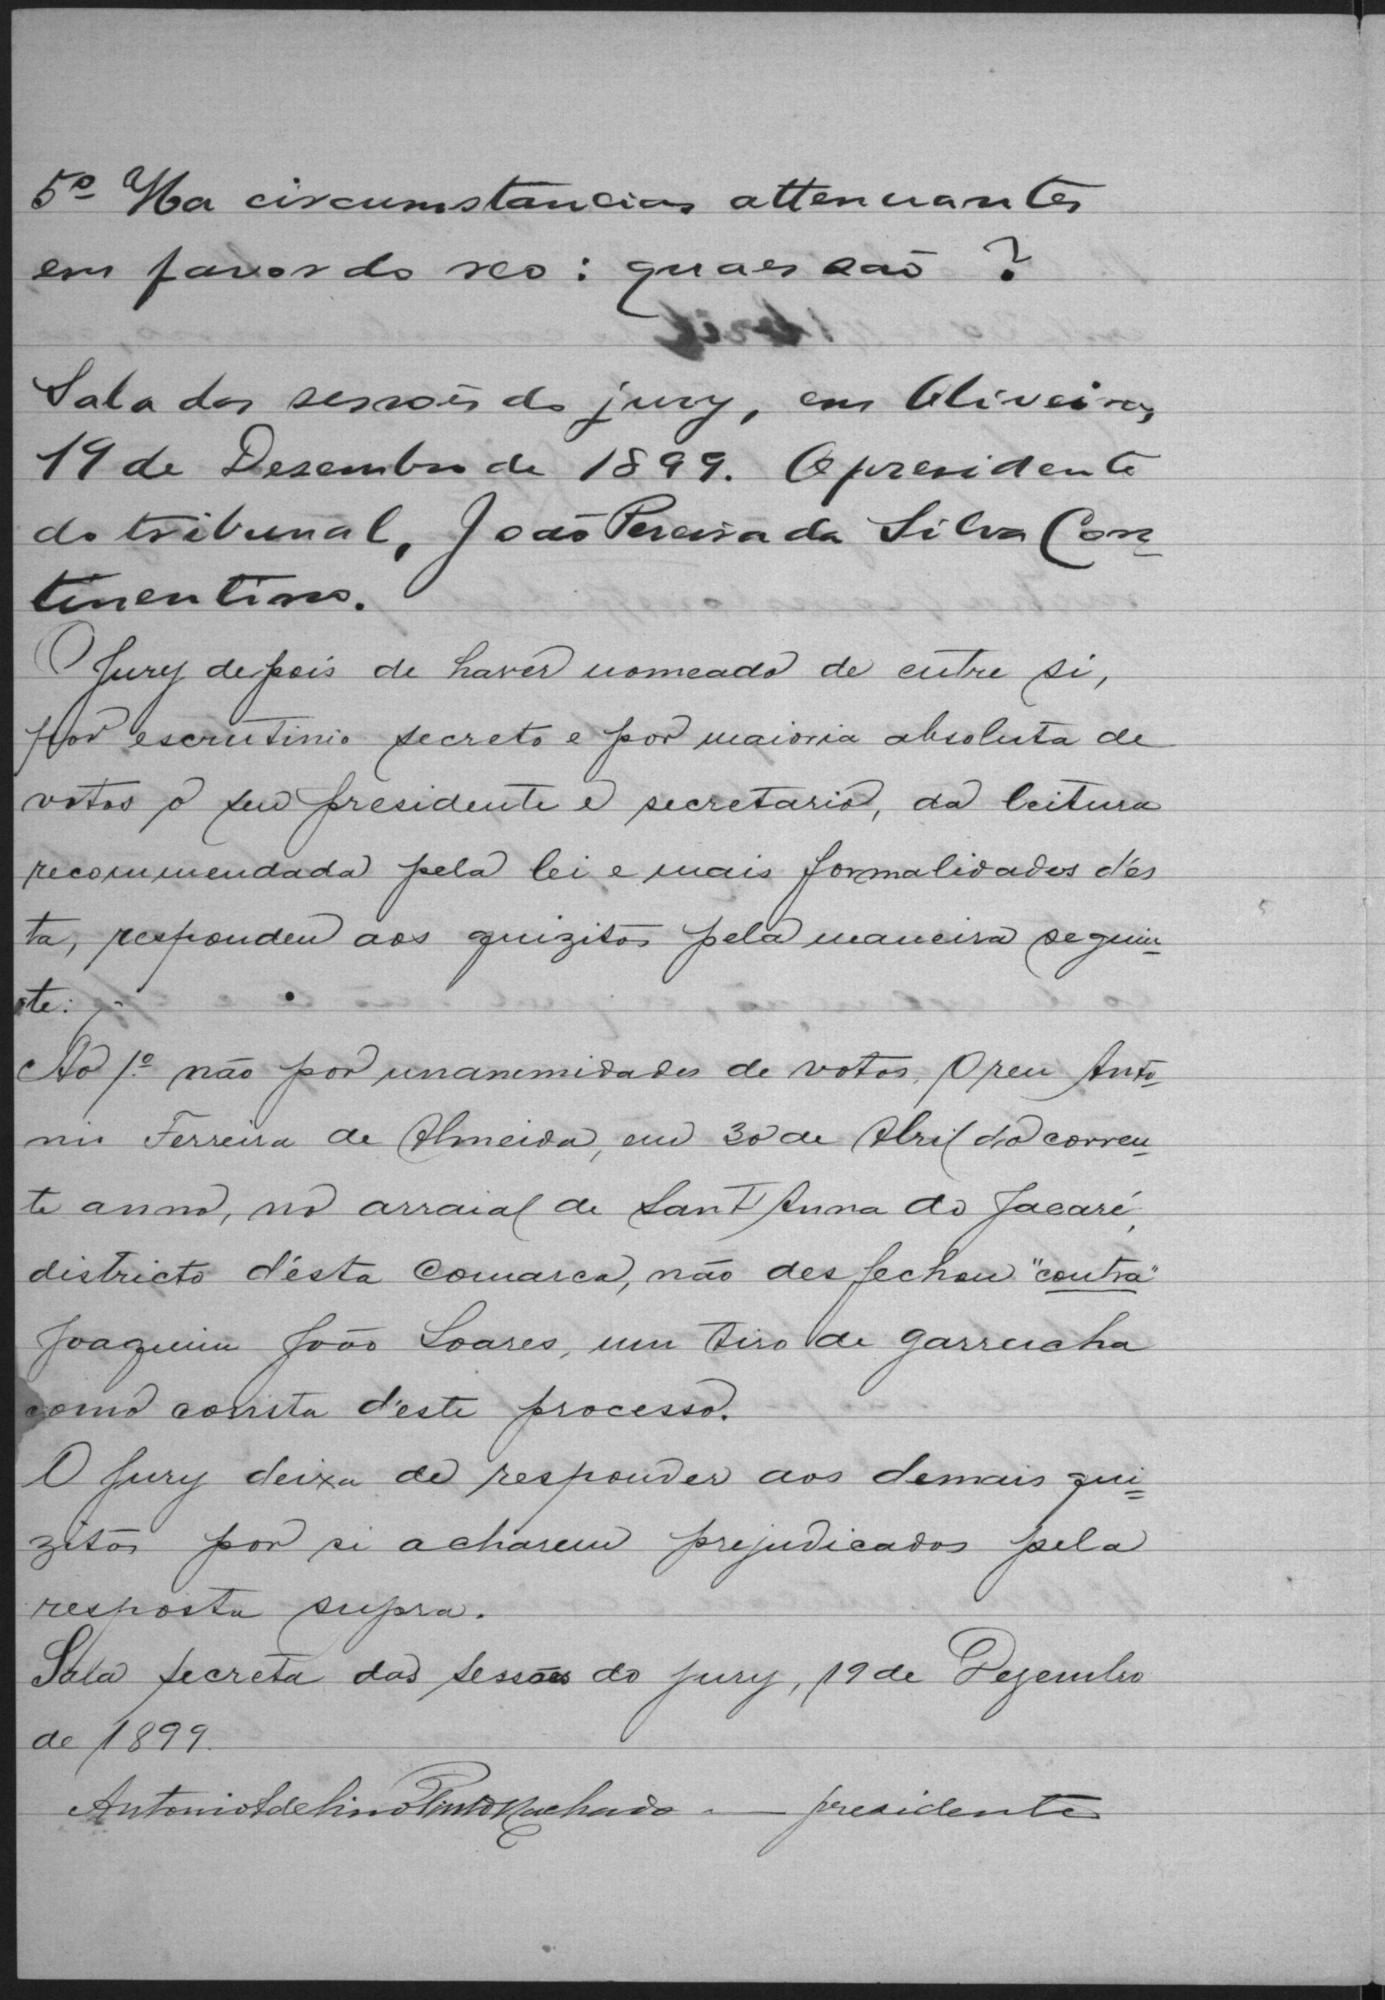 5º Ha circumstancias attenuantes
em favor do reo: quaes são?
Sala das sessões do jury, em Oliveira,
19 de Desembro de 1899. O presidente
do tribunal, João Pereira da Silva Con-
tinentino.
O Jury depois de haver nomeado de entre si,
por escrutinio secreto e por maioria absoluta de
votos o seu presidente e secretario, da leitura
recommendada pela lei e mais formalidades dés
ta, respondeu aos quizitos pela maneira seguin-
te:
Ao 1º não por unanimidades de votos. O reu Anto-
nio Ferreira de Almeida, em 30 de Abril do corren-
te anno, no arraial de Sant'Anna do Jacaré,
districto d'ésta Comarca, não desfechou "contra"
Joaquim João Soares, um tiro de garrucha
como consta d'este processo.
O Jury deixa de responder aos demais qui-
zitos por si acharem prejudicados pela
resposta supra.
Sala secreta das sessões do jury, 19 de Dezembro
de 1899.
Antonio Adelino Pinto Machado — presidente